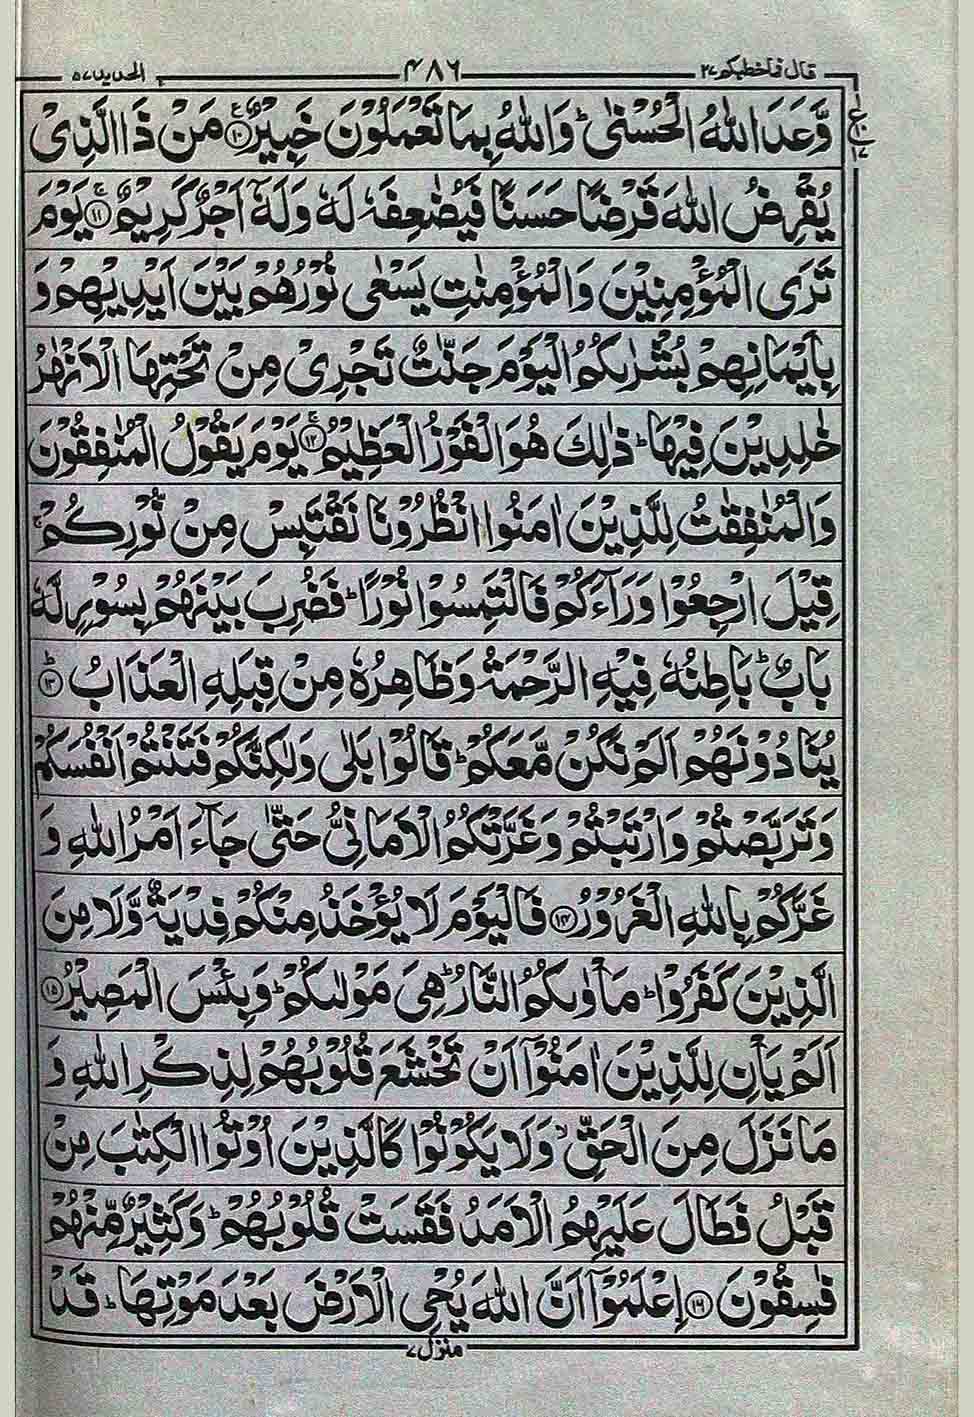 قال فما خطبكم ٢٧ ۴۸۶ الحديد ٥٧
وَّعَدَ اللّٰهُ الْحُسْنٰىؕ وَاللّٰهُ بِمَا تَعْمَلُوْنَ خَبِيْرٌ ⑩ مَنْ ذَا الَّذِىْ
ع
١٧
يُقْرِضُ اللّٰهَ قَرْضًا حَسَنًا فَيُضٰعِفَهٗ لَهٗ وَلَهٗۤ اَجْرٌ كَرِيْمٌۚ ⑪ يَوْمَ
تَرَى الْمُؤْمِنِيْنَ وَالْمُؤْمِنٰتِ يَسْعٰى نُوْرُهُمْ بَيْنَ اَيْدِيْهِمْ وَ
بِاَيْمَانِهِمْ بُشْرٰىكُمُ الْيَوْمَ جَنّٰتٌ تَجْرِىْ مِنْ تَحْتِهَا الْاَنْهٰرُ
خٰلِدِيْنَ فِيْهَاؕ ذٰلِكَ هُوَ الْفَوْزُ الْعَظِيْمُۚ ⑫ يَوْمَ يَقُوْلُ الْمُنٰفِقُوْنَ
وَالْمُنٰفِقٰتُ لِلَّذِيْنَ اٰمَنُوا انْظُرُوْنَا نَقْتَبِسْ مِنْ نُّوْرِكُمْۚ
قِيْلَ ارْجِعُوْا وَرَآءَكُمْ فَالْتَمِسُوْا نُوْرًاؕ فَضُرِبَ بَيْنَهُمْ بِسُوْرٍ لَّهٗ
بَابٌؕ بَاطِنُهٗ فِيْهِ الرَّحْمَةُ وَظَاهِرُهٗ مِنْ قِبَلِهِ الْعَذَابُؕ ⑬
يُنَادُوْنَهُمْ اَلَمْ نَكُنْ مَّعَكُمْؕ قَالُوْا بَلٰى وَلٰكِنَّكُمْ فَتَنْتُمْ اَنْفُسَكُمْ
وَتَرَبَّصْتُمْ وَارْتَبْتُمْ وَغَرَّتْكُمُ الْاَمَانِىُّ حَتّٰى جَآءَ اَمْرُ اللّٰهِ وَ
غَرَّكُمْ بِاللّٰهِ الْغَرُوْرُ ⑭ فَالْيَوْمَ لَا يُؤْخَذُ مِنْكُمْ فِدْيَةٌ وَّلَا مِنَ
الَّذِيْنَ كَفَرُوْاؕ مَاْوٰىكُمُ النَّارُؕ هِىَ مَوْلٰىكُمْؕ وَبِئْسَ الْمَصِيْرُ ⑮
اَلَمْ يَاْنِ لِلَّذِيْنَ اٰمَنُوْۤا اَنْ تَخْشَعَ قُلُوْبُهُمْ لِذِكْرِ اللّٰهِ وَ
مَا نَزَلَ مِنَ الْحَقِّۙ وَلَا يَكُوْنُوْا كَالَّذِيْنَ اُوْتُوا الْكِتٰبَ مِنْ
قَبْلُ فَطَالَ عَلَيْهِمُ الْاَمَدُ فَقَسَتْ قُلُوْبُهُمْؕ وَكَثِيْرٌ مِّنْهُمْ
فٰسِقُوْنَ ⑯ اِعْلَمُوْۤا اَنَّ اللّٰهَ يُحْىِ الْاَرْضَ بَعْدَ مَوْتِهَاؕ قَدْ
منزل ٧